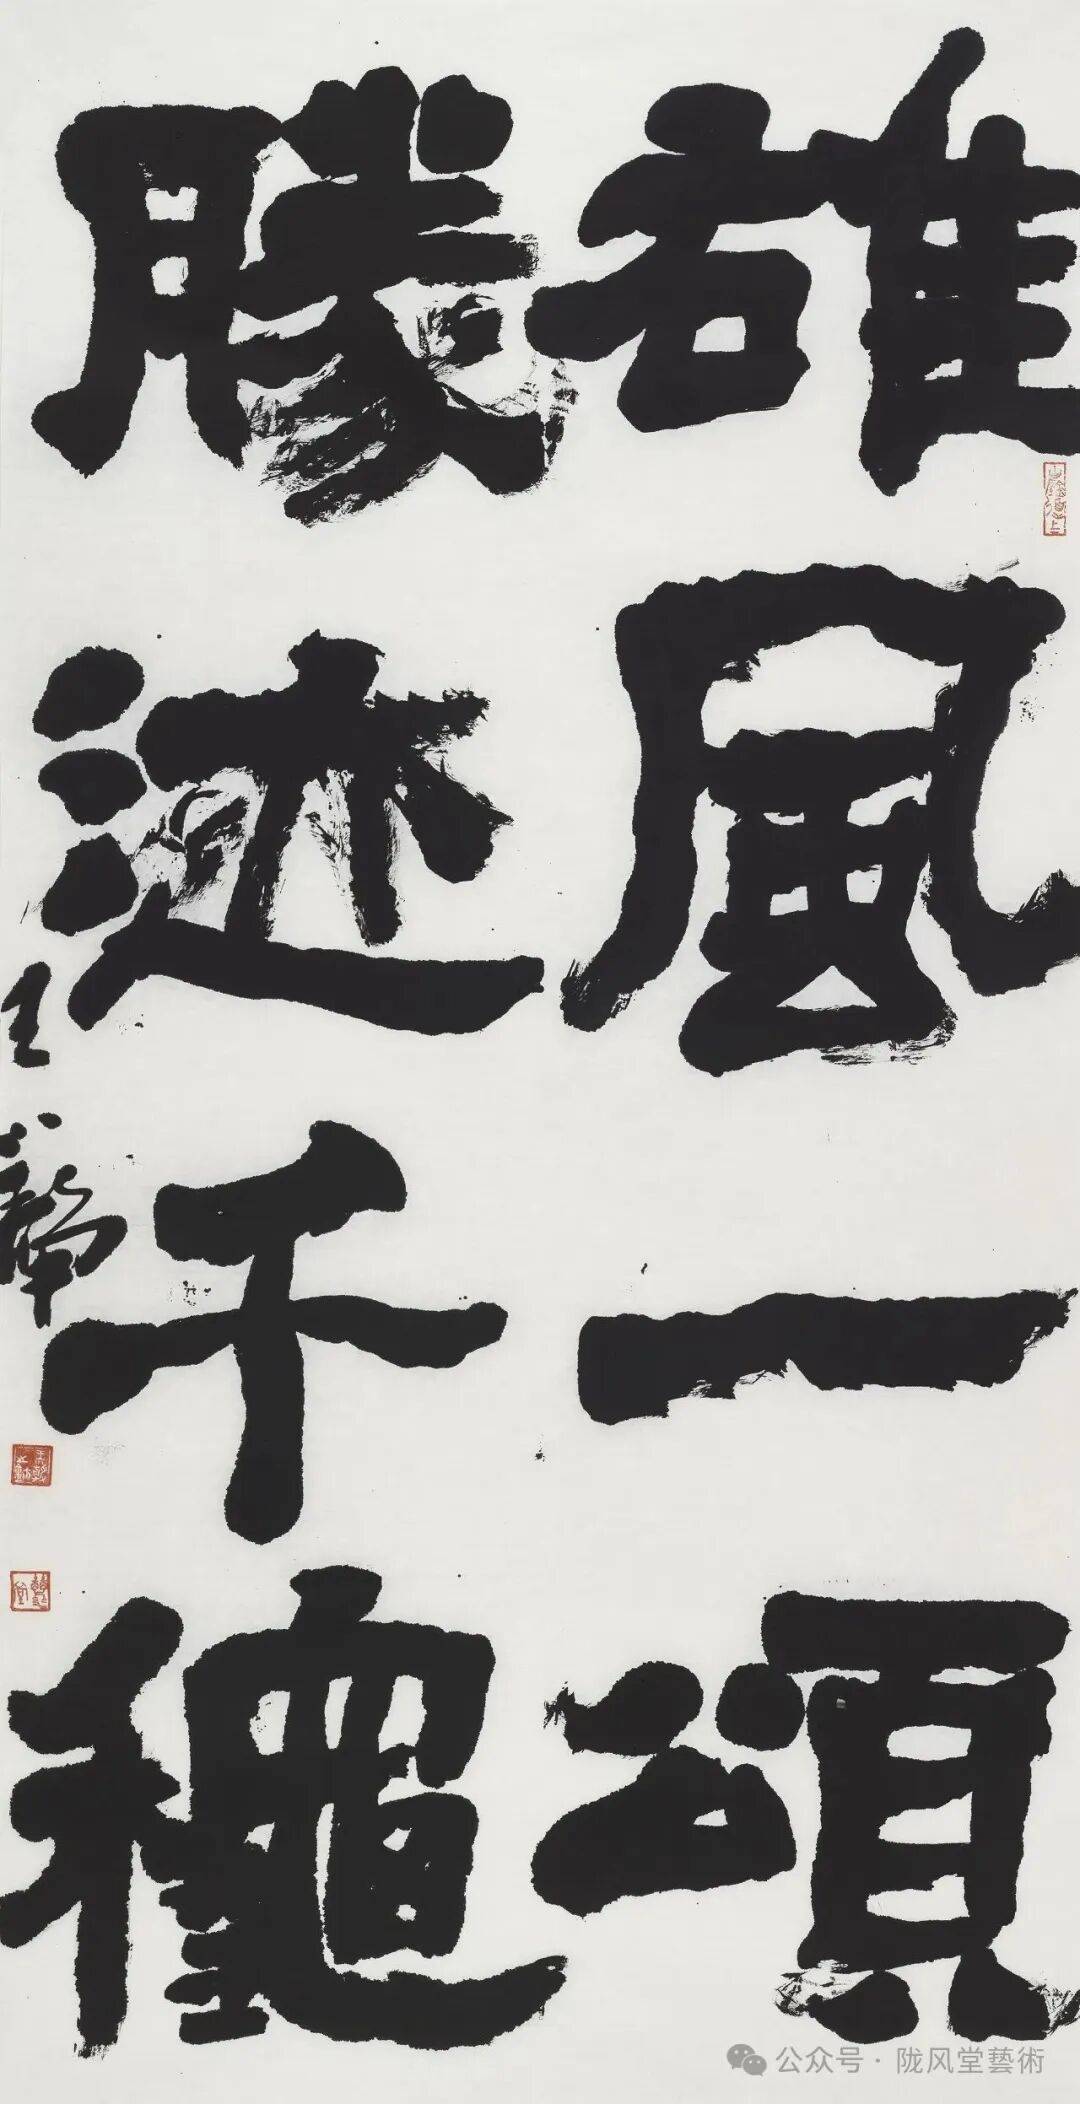 雄風一頌
勝迹千龝
王
公众号 · 陇风堂藝術